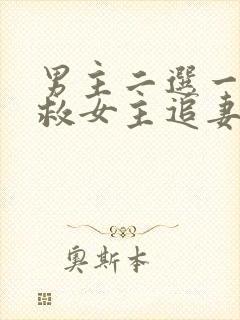 男主二選一
救女主追妻
奧斯本